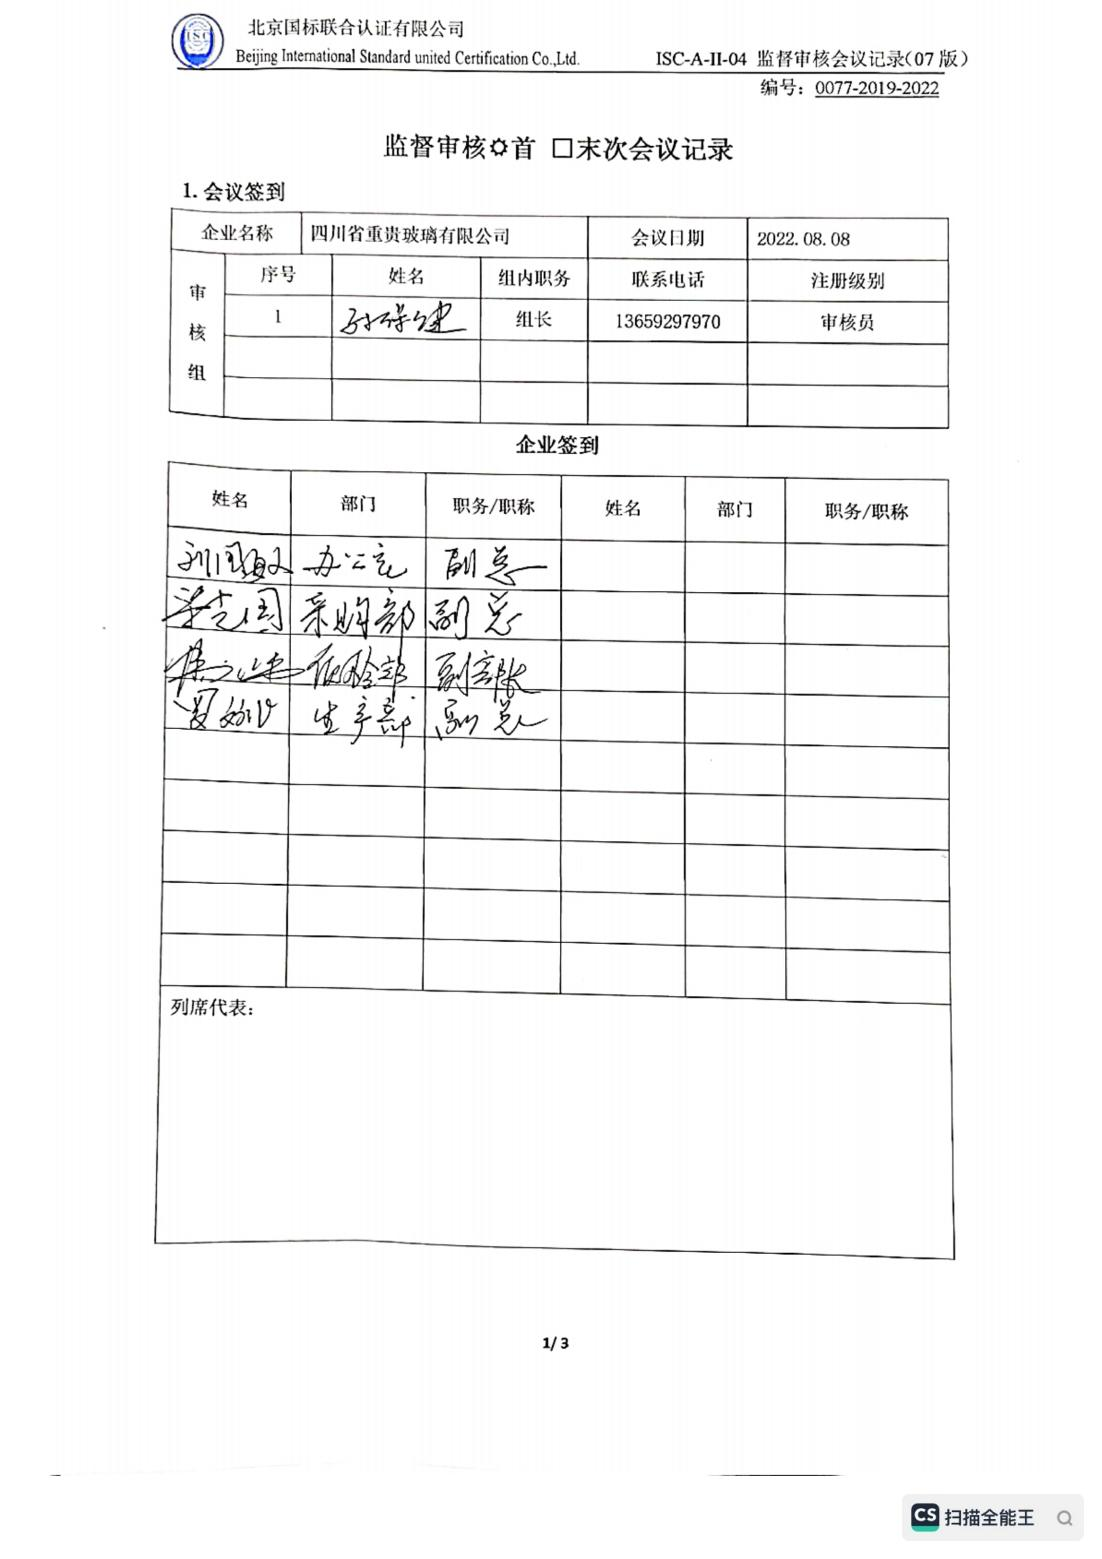 北京国标联合认证有限公司
Beijing International Standard united Certification Co.,Ltd.
ISC-A-II-04 监督审核会议记录(07 版)
编号：0077-2019-2022
监督审核首 □末次会议记录
1. 会议签到
企业名称 四川省重贵玻璃有限公司 会议日期 2022.08.08
审核组 序号 姓名 组内职务 联系电话 注册级别
1 组长 13659297970 审核员
企业签到
姓名 部门 职务/职称 姓名 部门 职务/职称
办公室 副总
采购部 副总
生产部 副总
列席代表：
1/ 3
CS 扫描全能王